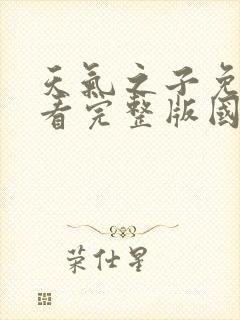 天氣之子免
看完整版國
荣仕星